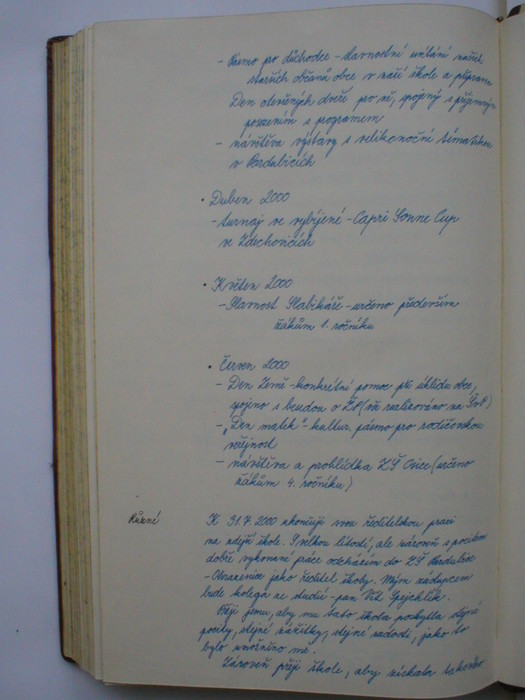 - Pásmo pro důchodce - slavnostní uvítání našich
starších občanů obce v naší škole a příprava
Den otevřených dveří pro ně, spojený s příjemným
posezením s programem
- návštěva výstavy s velikonoční tématikou
v Pardubicích
• Duben 2000
- turnaj ve vybíjené - Capri Sonne Cup
ve Zdechovicích
• Květen 2000
- Slavnost Slabikáře - určeno především
žákům 1. ročníku
• Červen 2000
- Den Země - konkrétní pomoc při úklidu obce,
spojeno s besedou o ŽP (vše realizováno na
- „Den matek" - kultur. pásmo pro rodičovskou
veřejnost
- návštěva a prohlídka ZŠ Ovice (určeno
žákům 4. ročníku)
Různé
K 31.7.2000 ukončuji svou ředitelskou práci
na zdejší škole. S velkou lítostí, ale zároveň s pocitem
dobře vykonané práce odcházím do ZŠ Pardubice
- jako ředitel školy. Mým zástupcem
bude kolega ze studií - pan Vít Spejchlík.
Přeji jemu, aby mu tato škola poskytla stejné
pocity, stejné zážitky, stejné radosti, jako to
bylo umožněno mě.
Zároveň přeji škole, aby získala